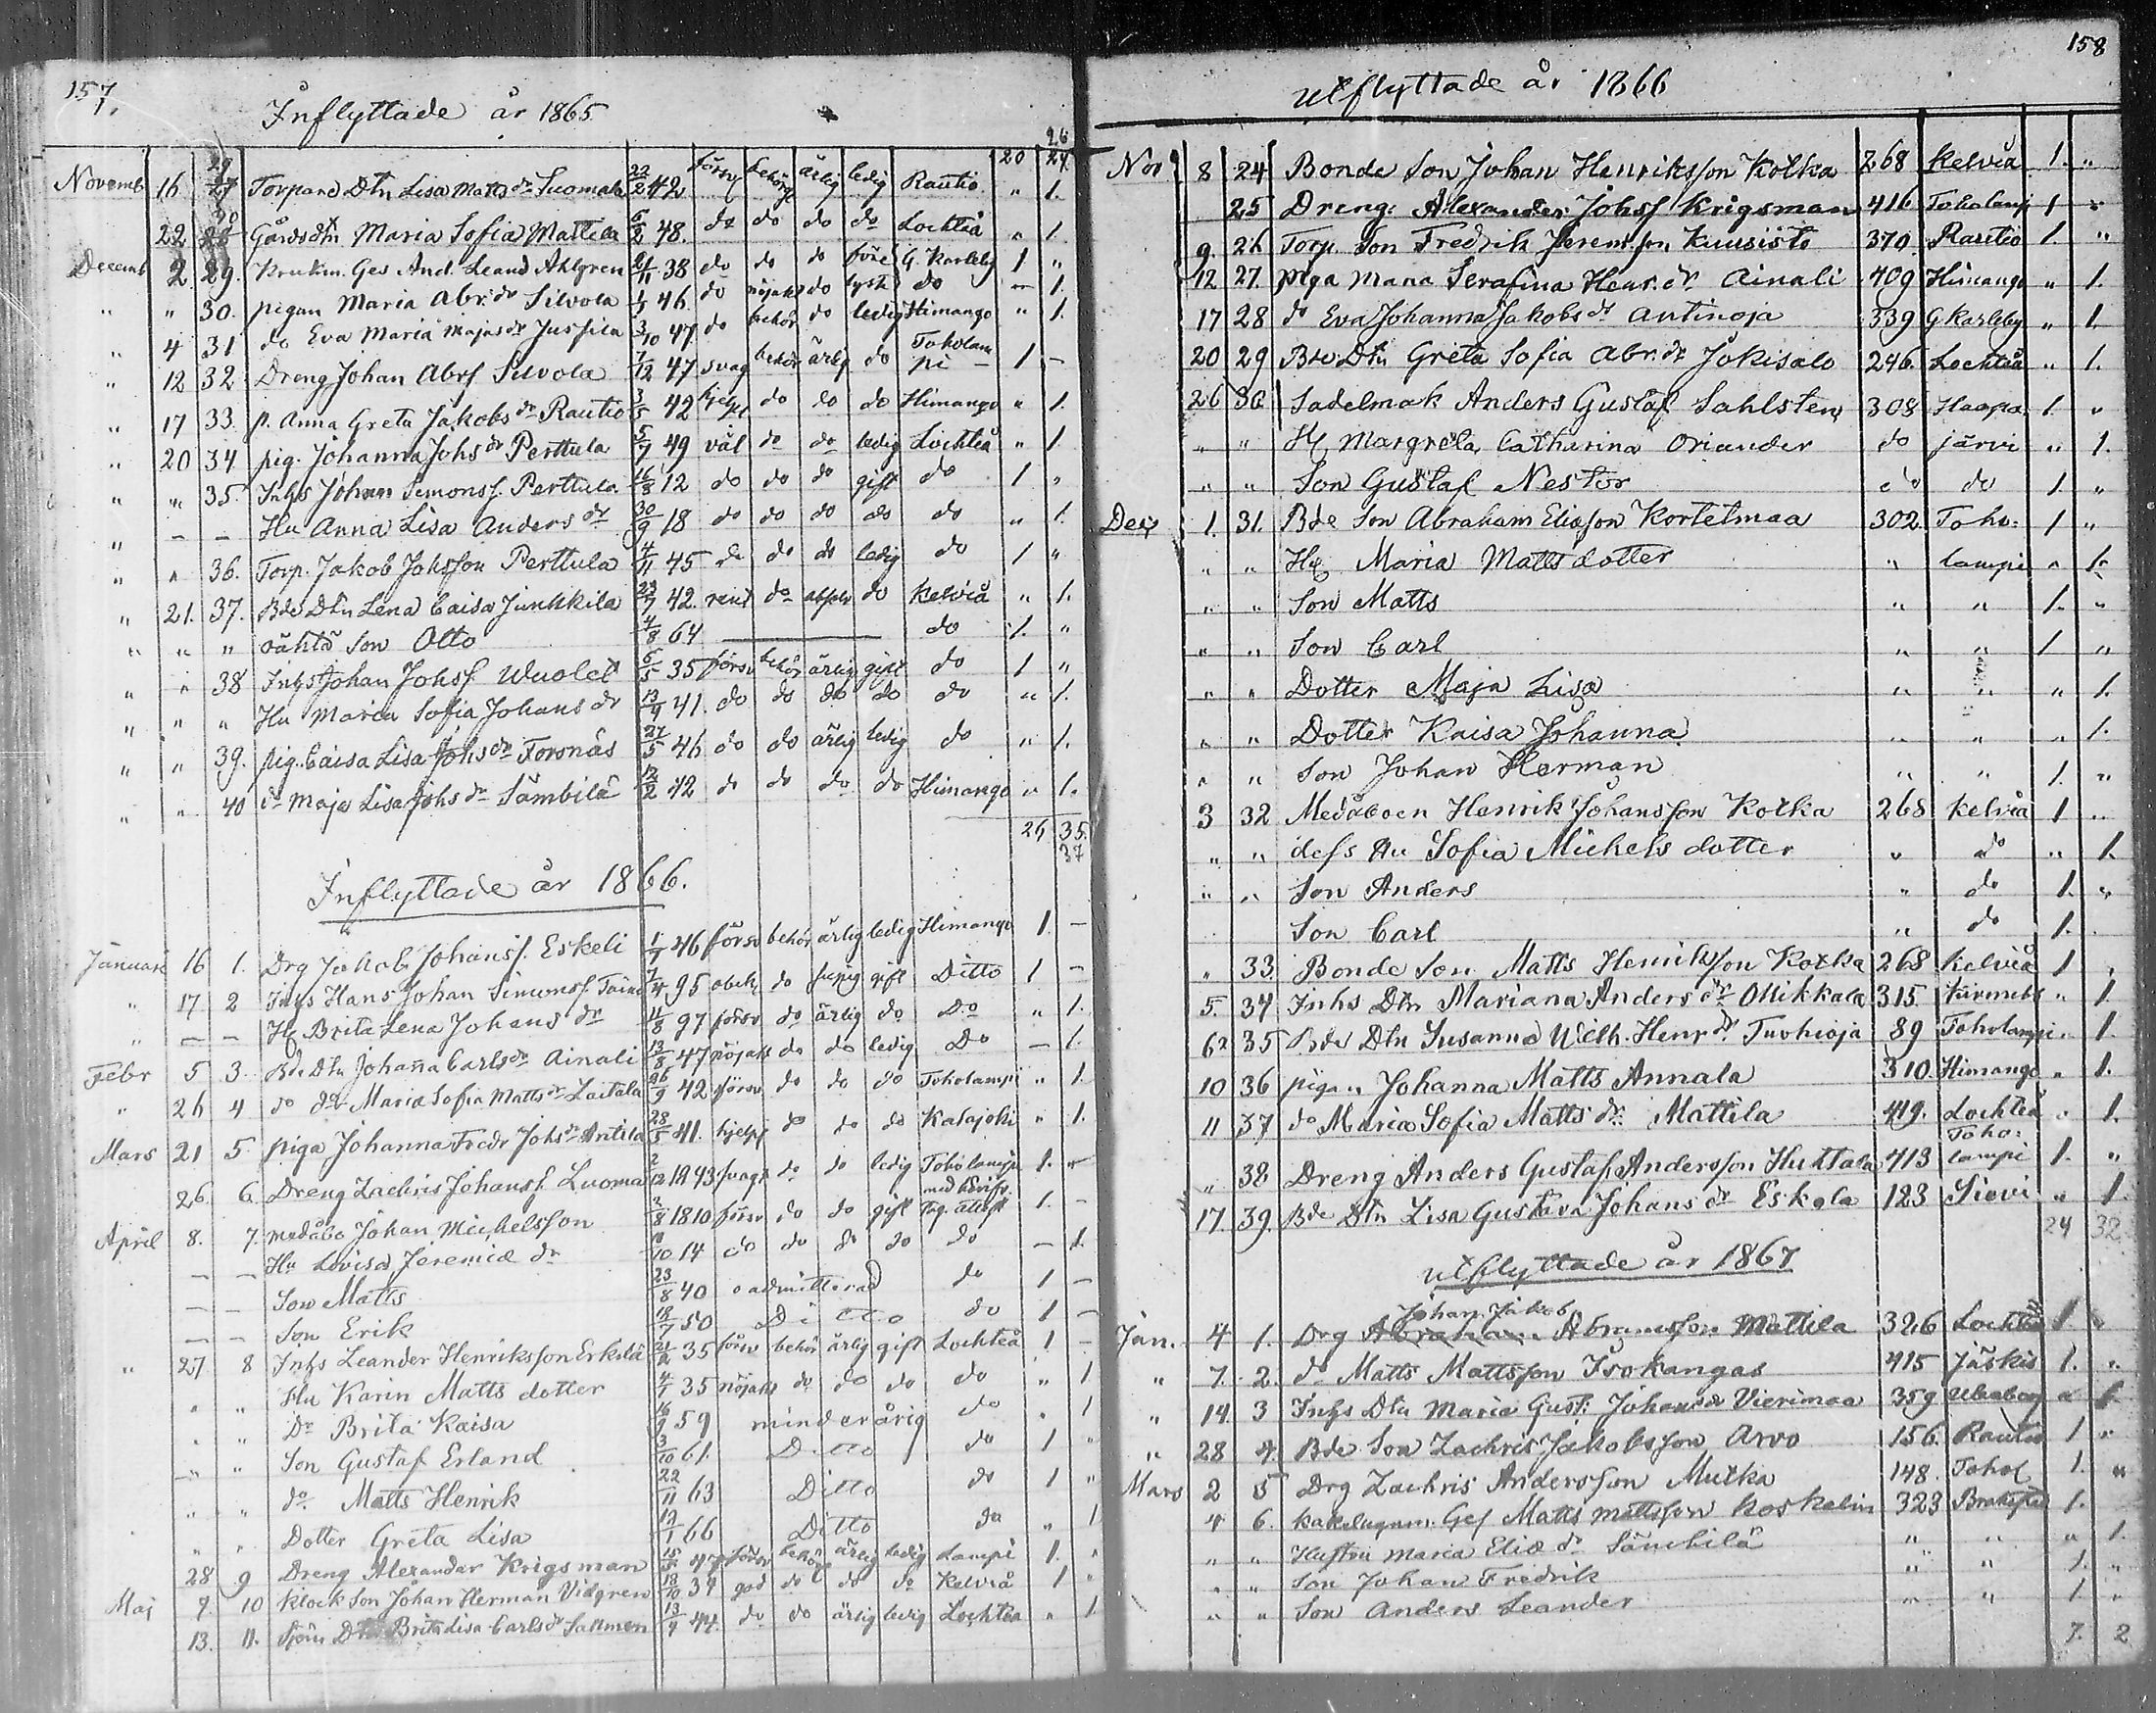 157.
Inflyttade år 1865
26
20 24
Novemb 16 27 Torpare Dtn Lisa Matts dr Suomala 22/2 42 försv behörg ärlig ledig Rautio " 1.
22 28 Gårds dtn Maria Sofia Mattila 6/2 48. do do do do Lochteå " 1.
Decemb 2. 29. Krukm. Ges And. Leand Ahlgren 21/11 38 do do do G. Karleby 1 "
" " 30. pigan Maria Abr. dr Silvola 1/1 46. do nöjakt do do — 1.
" 4 31 do Eva Maria Majas dr Jussila 3/10 47 do behör do ledig Himango " 1.
" 12 32 Dreng Johan Abrs Silvola 7/12 47 svag behör ärlig do Toholampi 1 —
" 17 33. p. Anna Greta Jakobs dr Rautio 3/5 42 hjelpl do do do Himango " 1.
" 20 34 pig. Johanna Johs dr Perttula 5/7 49 väl do do ledig Lochteå " 1.
" " 35. Inhs Johan Simonss. Perttula 16/8 12 do do do gift do 1 "
" — — Hu Anna Lisa Anders dr 30/9 18 do do do do do " 1.
" " 36. Torp. Jakob Johsson Perttula 4/11 45 do do do ledig do 1 "
" 21. 37. Bde Dtn Lena Caisa Junkkila 23/7 42. rent do absolv do Kelviå " 1.
" " " oäkta Son Otto 4/8 64 —— do 1. "
" " 38 Inhs Johan Johss Wuolet 6/5 35 försv behör ärlig gift do 1 "
" " " Hu Maria Sofia Johans dr 13/9 41. do do do do do " 1.
" " 39. pig. Caisa Lisa Johs dr Forsnäs 27/5 46 do do ärlig ledig do " 1.
" " 40 do Maja Lisa Johs dr Sämbilä 12/2 42 do do do do Himango " 1.
26 35.
37
Inflyttade år 1866.
Januari 16 1. Drg Jakob Johanss. Eskeli 1/7 46 försv behör ärlig ledig Himango 1. —
" 17 2 Inhs Hans Johan Simonss. 7/4 95 obek do gift Ditto 1 —
" — — Hu Brita Lena Johans dr 4/8 97 försv do ärlig do Do " 1.
Febr 5 3. Bde Dtn Johanna Carls dr Ainali 13/8 47 nöjakt do do ledig Do — 1.
" 26 4 do dr Maria Sofia Matts dr Laitala 26/9 42 försv do do do Toholampi " 1.
Mars 21 5 piga Johanna Fredr Johs dr Antila 28/5 41. hjelpl do do do Kalajoki " 1.
26. 6. Dreng Zachris Johanss. Luoma 2/12 1843 svag do do ledig Toholampi 1. "
April 8. 7. medåbo Johan Michelsson 3/8 1810 försv do do gift 1. —
— — Hu Lovisa Jeremiæ dr 10 14 do do do do do — 1.
— — Son Matts 23/8 40 oadmitterad do 1 —
— — Son Erik 18/7 50 Ditto do 1 —
" 27 8 Inhs Leander Henriksson Erkilä 21/2 35 försv behör ärlig gift Lochteå 1 —
" " Hu Karin Matts dotter 4/7 35 nöjakt do do do do " 1
" " Dr Brita Kaisa 16/9 59 minderårig do " 1
" " Son Gustaf Erland 3/10 61. Ditto do 1 "
" " do Matts Henrik 22/11 63 Ditto do 1 "
" " Dotter Greta Lisa 12/1 66 Ditto do " 1
28 9 Dreng Alexander Krigsman 15/3 47 försv behörg ärlig ledig Lampi 1. "
Maj 7. 10 Klock Son Johan Herman Vidgren 18/10 39 god do do do Kelviå 1 "
13. 11. Sjöm Dtn Brita Lisa Carls dr Sallmen 13/9 44. do do ärlig ledig Lochteå " 1
158
Utflyttade år 1866
Nov 8 24 Bonde Son Johan Henriksson Kotka 268 Kelviå 1. "
25 Dreng. Alexander Johss Krigsman 416 Toholampi 1 "
9. 26 Torp. Son Fredrik Jeremsson Kuusisto 370. Rautio 1. "
12 27. piga Maria Serafina Henr. dr Ainali 409 Himango " 1.
17 28 do Eva Johanna Jakobs dr Antinoja 339 G Karleby " 1.
20 29 Bde Dtn Greta Sofia Abr. dr Jokisalo 246. Lochteå " 1.
26 30 Sadelmak Anders Gustaf Sahlsten 308 Haapa 1. "
" " Hu Margreta Catharina Oriander do järvi " 1.
" " Son Gustaf Nestor do do 1. "
Decr 1. 31. Bde Son Abraham Eliasson Kortetmaa 302. Toho- 1 "
" " Hu Maria Matts dotter " lampi " 1.
" " Son Matts " " 1. "
" " Son Carl " " 1 "
" " Dotter Maja Lisa " " " 1.
" " Dotter Kaisa Johanna " " " 1.
" " Son Johan Herman " " 1. "
3 32 Medåboen Henrik Johansson Kotka 268 Kelviå 1 "
" " dess Hu Sofia Michels dotter " do " 1.
" " Son Anders " do 1. "
Son Carl " do 1.
" 33. Bonde Son Matts Henriksson Kotka 268 Kelviå 1 "
5. 34 Inhs Dtn Mariana Anders dr Ollikkala 315. " 1.
6 35 Bde Dtn Susanna Wilh. Henr dr Tuohioja 89 Toholampi " 1.
10 36 piga " Johanna Matts Annala 310. Himango " 1.
11 37 do Maria Sofia Matts dr. Mattila 419. Lochteå " 1.
" 38 Dreng Anders Gustaf Andersson Huttala 413 Toholampi 1. "
17. 39. Bde Dtn Lisa Gustava Johans dr Eskola 123 Sievi " 1.
24 32
Utflyttade år 1867
Johan Jakob
Jan. 4 1. Drg Abraham Abramsson Mattila 326 Lochteå 1. "
" 7. 2. do Matts Mattsson Isokangas 415 Jääskis 1. "
" 14. 3 Inhs Dtn Maria Gust. Johans dr Vierimaa 359 Uleaborg " 1.
" 28 4. Bde Son Zachris Jakobsson Arvo 156. Rautio 1 "
Mars 2 5 Drg Zachris Andersson Mutka 148. Tohol 1. "
4 6. Kakelugnm. Ges Matts Mattsson Koskelin 323 Brahestad 1.
" " Hustru Maria Eliæ dr Sämbilä " " " 1.
" " Son Johan Fredrik " " 1. "
" " Son Anders Leander " " 1 "
7. 2